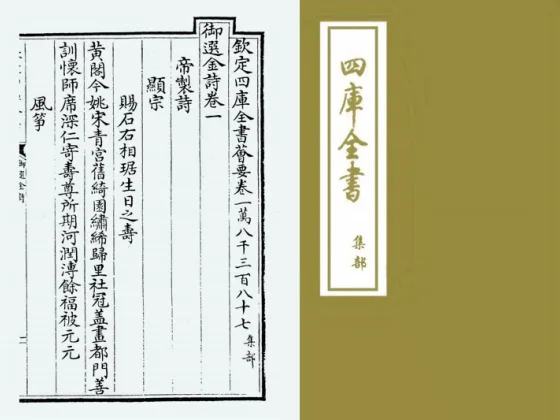 欽定四庫全書薈要卷一萬八千三百八十七 集部
御選金詩卷一
帝製詩
顯宗
賜石右相琚生日之壽
黃閣今姚宋青宮舊綺園繡絺歸里社冠蓋畫都門善
訓懷師席深仁寄壽尊所期河潤溥餘福被元元
風箏
四庫全書
集部